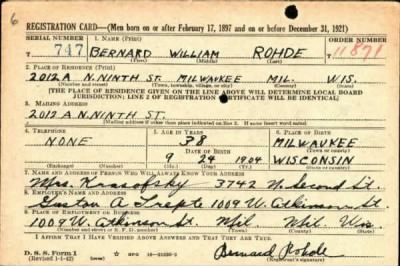 6
REGISTRATION CARD—(Men born on or after February 17, 1897 and on or before December 31, 1921)
SERIAL NUMBER 1. NAME (Print) ORDER NUMBER
747 BERNARD WILLIAM ROHDE 11871
(First) (Middle) (Last)
2. PLACE OF RESIDENCE (Print)
2012A N. NINTH ST. MILWAUKEE MIL. WIS.
(Number and street) (Town, township, village, or city) (County) (State)
[THE PLACE OF RESIDENCE GIVEN ON THE LINE ABOVE WILL DETERMINE LOCAL BOARD
JURISDICTION; LINE 2 OF REGISTRATION CERTIFICATE WILL BE IDENTICAL]
3. MAILING ADDRESS
2012A N. NINTH ST.
[Mailing address if other than place indicated on line 2. If same insert word same]
4. TELEPHONE 5. AGE IN YEARS 6. PLACE OF BIRTH
NONE 38 MILWAUKEE
DATE OF BIRTH (Town or county)
9 24 1904 WISCONSIN
(Exchange) (Number) (Mo.) (Day) (Yr.) (State or country)
7. NAME AND ADDRESS OF PERSON WHO WILL ALWAYS KNOW YOUR ADDRESS
Mrs. 3742 N. Second St.
8. EMPLOYER'S NAME AND ADDRESS
Gustav A Trepte 1009 W. Atkinson St.
9. PLACE OF EMPLOYMENT OR BUSINESS
1009 W. Atkinson St. Mil. Mil. Wis.
(Number and street or R. F. D. number) (Town) (County) (State)
I AFFIRM THAT I HAVE VERIFIED ABOVE ANSWERS AND THAT THEY ARE TRUE.
D. S. S. Form 1
(Revised 1-1-42) (over) Bernard Rohde